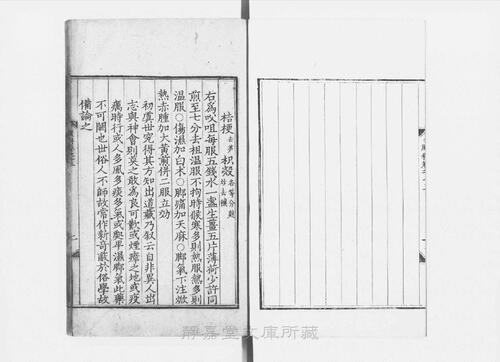 桔梗去芦枳殻各等分麩炒去穰
右為㕮咀每服五錢水一盞生薑五片薄荷少許同
煎至七分去柤溫服不拘時候寒多則熱服熱多則
溫服〇傷濕加白朮〇腳痛加天麻〇腳氣下注焮
熱赤腫加大黄煎併二服立効
初虞世究得其方知出道藏乃叙云自非異人出
志與神會則莫之敢為良可歎或煙瘴之地或疫
癘時行或人多風多痰多氣或奥平濕腳氣此藥
不可闕也世俗人不師故常作新奇蔽於俗學故
備論之
静嘉堂文庫所蔵